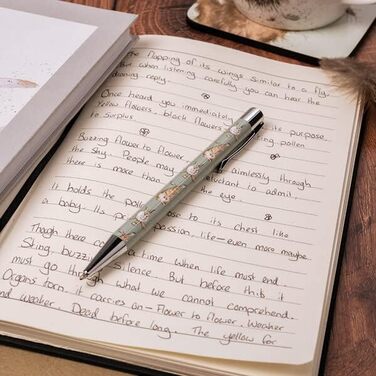 The flapping of its wings similar to a fly.
But when listening carefully you can hear the
droning reply.
Once heard you immediately its purpose
Yellow flowers, black flowers pollen
to surplus.
Buzzing flower to flower, aimlessly through
the sky. People may reluctant to admit,
there is more than the eye
It holds the poll to its chest like
a baby. Its pe passion, life – even more maybe.
Though there ca a time when life must end.
Sting. buzz silence. But before this it
must go through what we cannot comprehend.
Organs torn, it carries on – Flower to flower. Weaker
and weaker. Dead before long. The yellow for